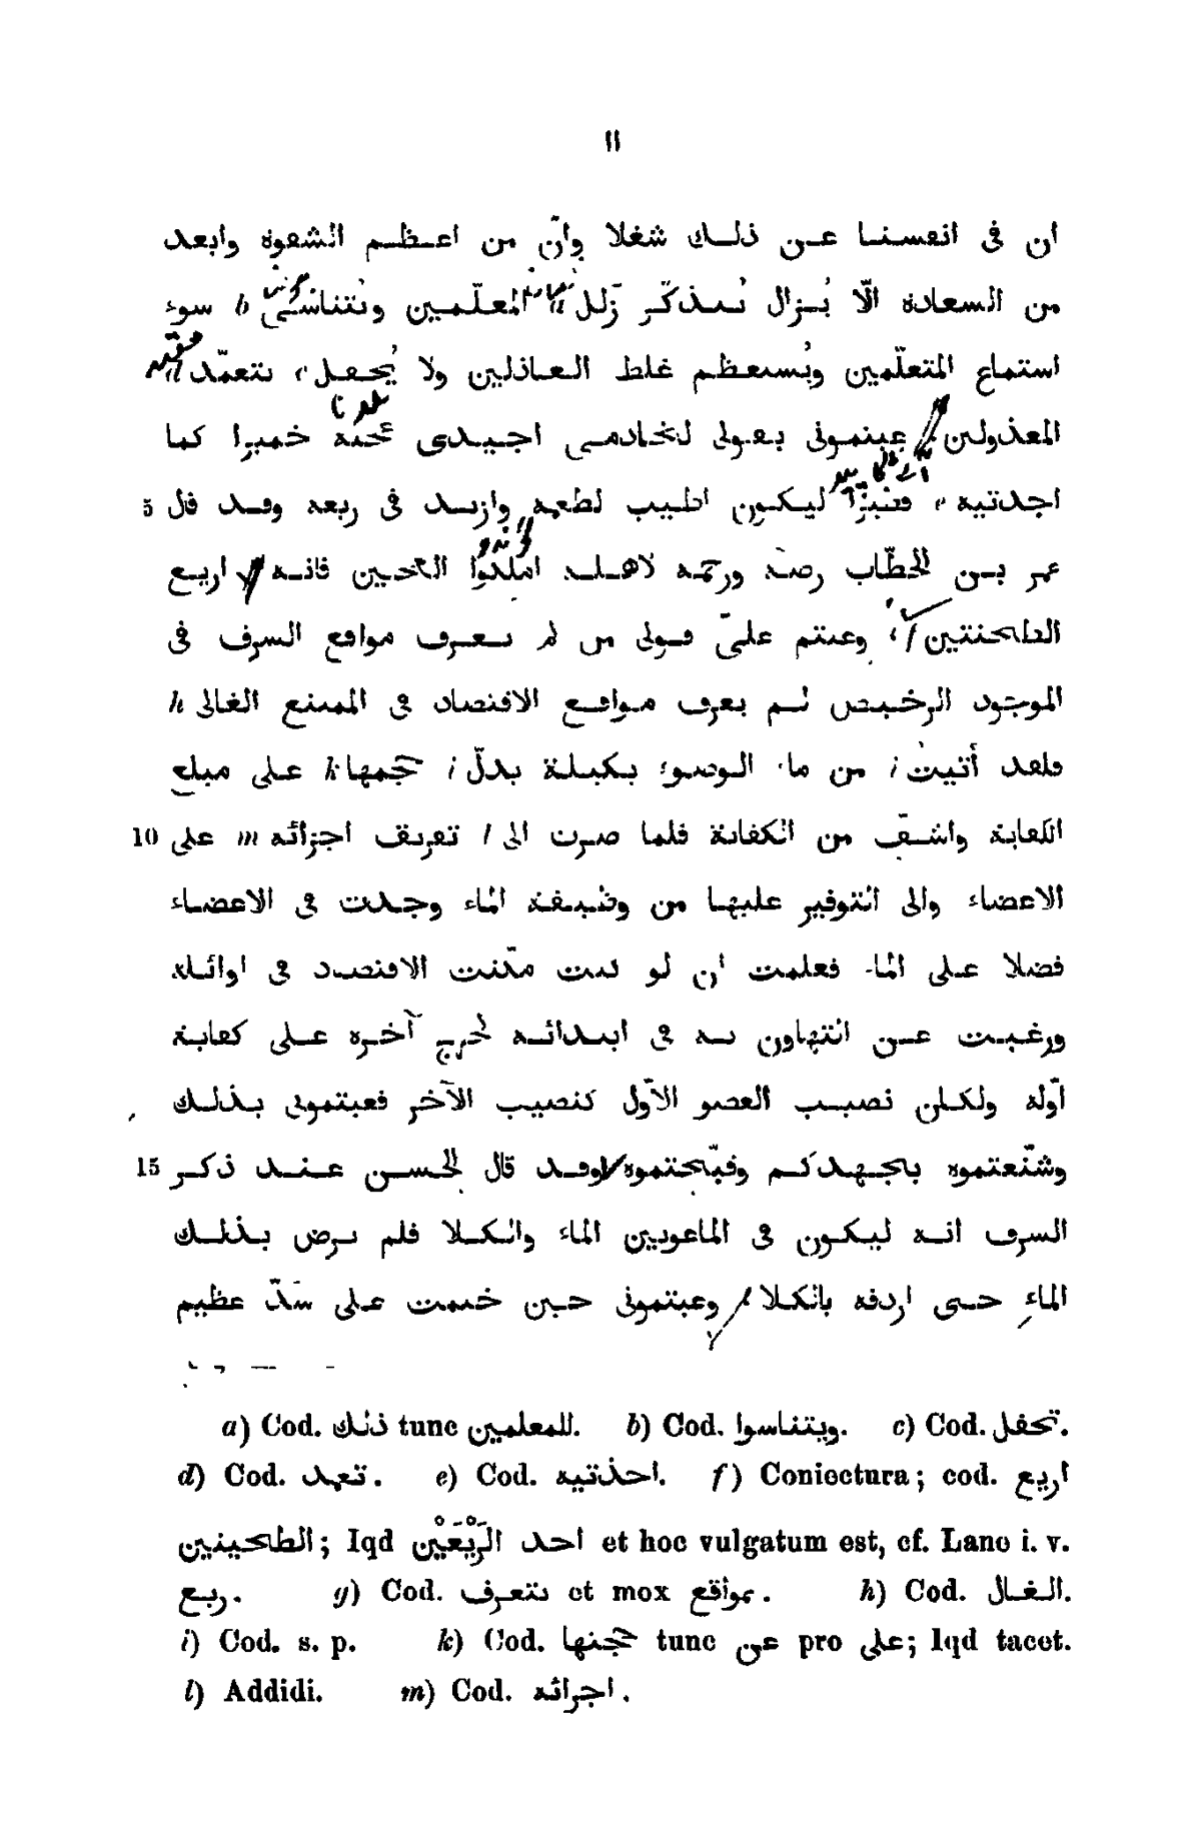 ١١
ان فى انفسنا عن ذلك شغلا وانّ من اعظم الشقوة وابعد
من السعادة الّا يُزال نتذكّر زَلل a المعلّمين ونتناسى b سوء
استماع المتعلّمين ويُستعظم غلط العاذلين ولا يُحفل c بتعمّد d
المعذولين عبتمونى بقولى لخادمى اجيدى عجنه خميرا كما
اجدتيه e فطيرًا ليكون اطيب لطعمه وازيد فى ريعه وقد قال 5
عمر بن الخطّاب رضه ورحمه لاهله املكوا العجين فانه اريع
الطحنتين f وعبتم علىّ قولى من لم يعرف مواقع السرف فى
الموجود الرخيص لم يعرف مواقع الاقتصاد فى الممتنع الغالى h
فلقد أتيت i من ماء الوضوء بكيلة يدلّ i حجمها k على مبلغ
الكفاية واشفّ من الكفاية فلما صرت الى l تفريق اجزائه m على 10
الاعضاء والى التوفير عليها من وظيفة الماء وجدت فى الاعضاء
فضلا على الماء فعلمت ان لو كنت مكّنت الاقتصاد فى اوائله
ورغبت عن التهاون به فى ابتدائه لخرج آخره على كفاية
اوّله ولكان نصيب العضو الاوّل كنصيب الآخر فعبتمونى بذلك
وشنّعتموه بجهدكم وقبّحتموه وقد قال الحسن عند ذكر 15
السرف انه ليكون فى الماعونين الماء والكلا فلم يرض بذلك
الماء حتى اردفه بالكلا وعبتمونى حين ختمت على سدّ عظيم
a) Cod. ذلك tunc للمعلمين. b) Cod. ويتناسوا. c) Cod. تحفل.
d) Cod. تعهد. e) Cod. احذتيه. f) Coniectura; cod. اريع
الطحينين; Iqd احد الرَيْعَيْن et hoc vulgatum est, cf. Lane i. v.
ريع. g) Cod. نتعرف et mox بمواقع. h) Cod. الغال.
i) Cod. s. p. k) Cod. حجنها tunc عن pro على; Iqd tacet.
l) Addidi. m) Cod. اجرائه.